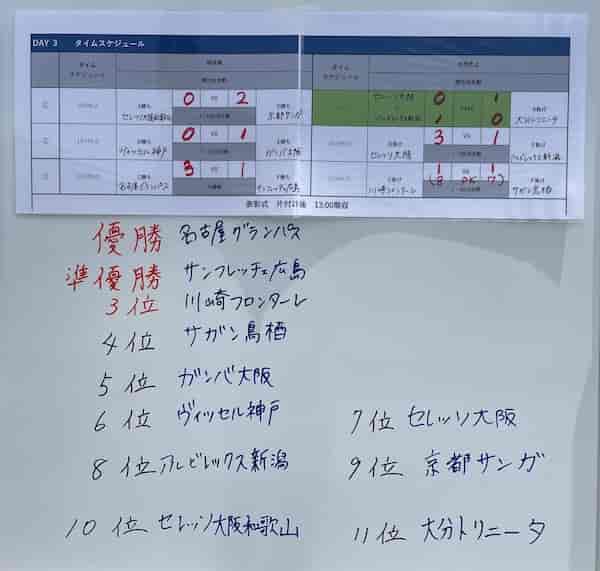 DAY 3 タイムスケジュール
タイム
スケジュール
タイム
スケジュール
0 VS 2
セレッソ大阪和歌山
京都サンガ
0 VS 1
ヴィッセル神戸
ガンバ大阪
3 VS 1
名古屋グランパス
セレッソ大阪
0 1
1 0
大分トリニータ
3 VS 1
セレッソ大阪
アルビレックス新潟
1 VS 1
(8 PK 7)
川崎フロンターレ
サガン鳥栖
表彰式 片付け後 13:00解散
優勝 名古屋グランパス
準優勝 サンフレッチェ広島
3位 川崎フロンターレ
4位 サガン鳥栖
5位 ガンバ大阪
6位 ヴィッセル神戸
7位 セレッソ大阪
8位 アルビレックス新潟
9位 京都サンガ
10位 セレッソ大阪和歌山
11位 大分トリニータ